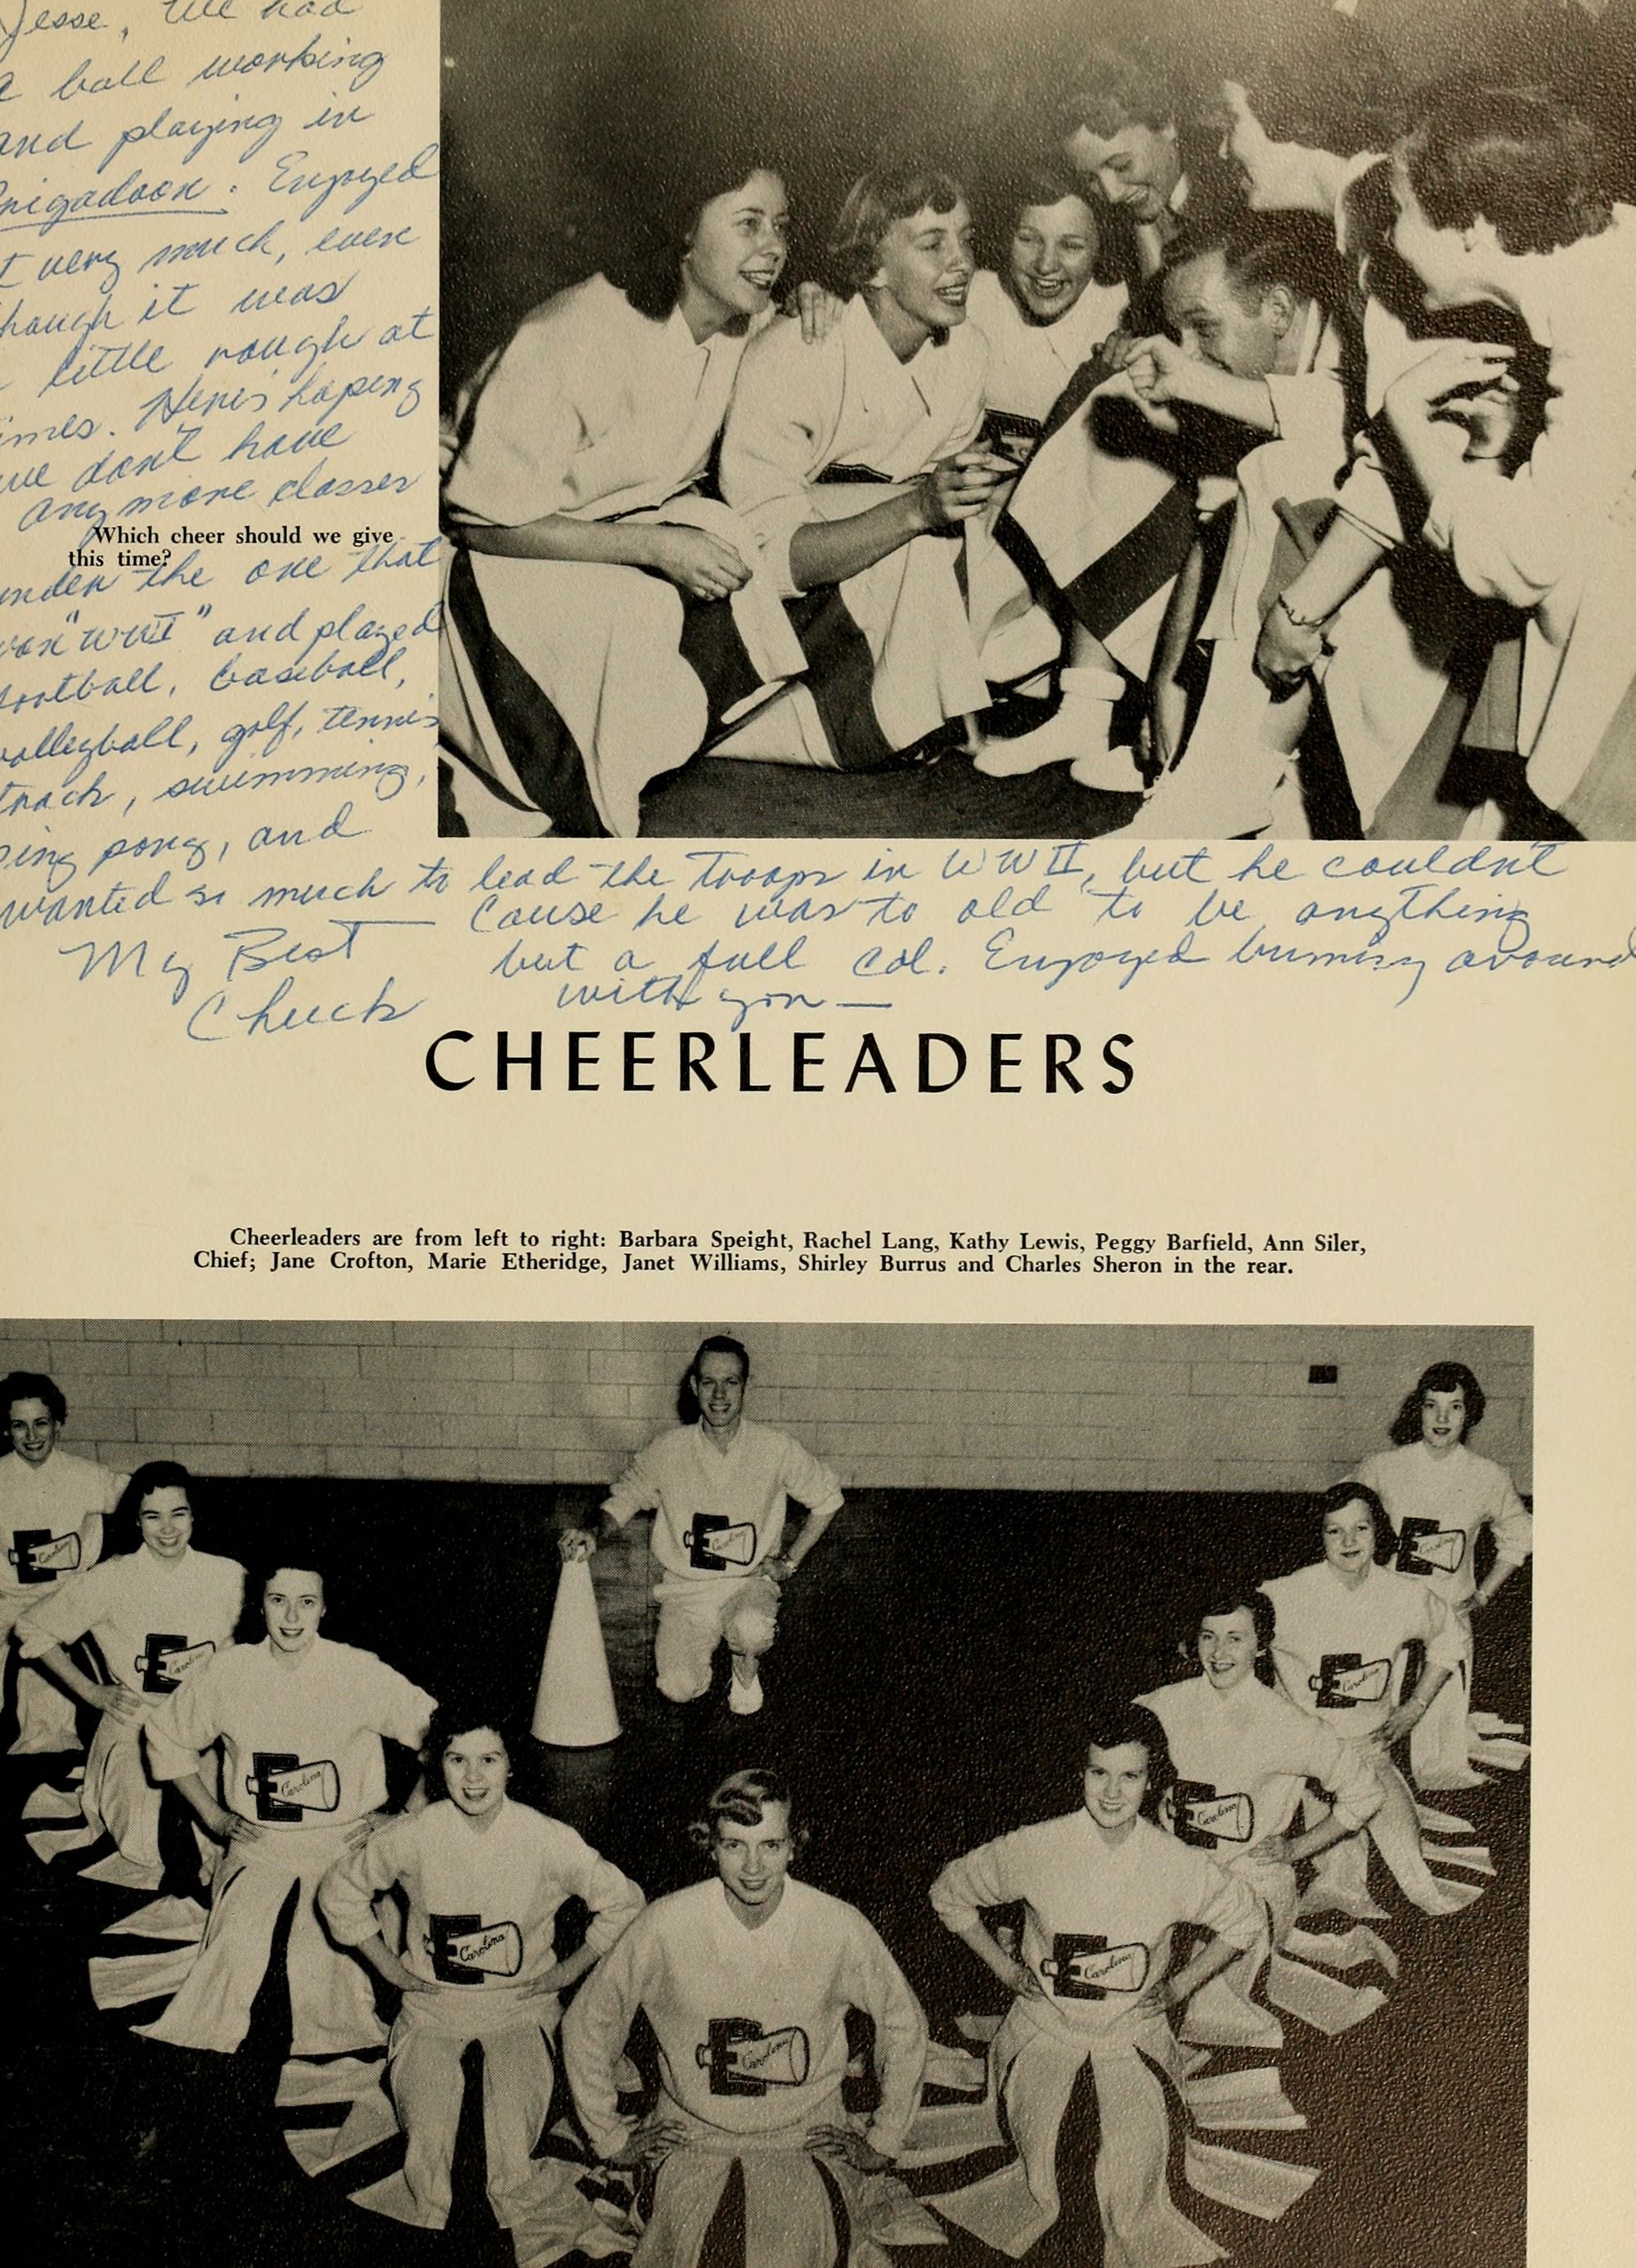 Jesse, We had
a ball working
and playing in
rigadoon. Enjoyed
it very much, even
hough it was
little rough at
imes. Here's hoping
we don't have
any more classes
Which cheer should we give
this time?
under the one that
won "WWI" and played
football, baseball,
volleyball, golf, tennis,
track, swimming,
ping pong, and
wanted so much to lead the troops in WW II, but he couldn't
cause he was to old to be anything
but a full col. Enjoyed buming around
with you —
My Best —
Chuck
CHEERLEADERS
Cheerleaders are from left to right: Barbara Speight, Rachel Lang, Kathy Lewis, Peggy Barfield, Ann Siler,
Chief; Jane Crofton, Marie Etheridge, Janet Williams, Shirley Burrus and Charles Sheron in the rear.
E Carolina
E Carolina
E Carolina
E Carolina
E Carolina
E Carolina
E Carolina
E Carolina
E Carolina
E Carolina